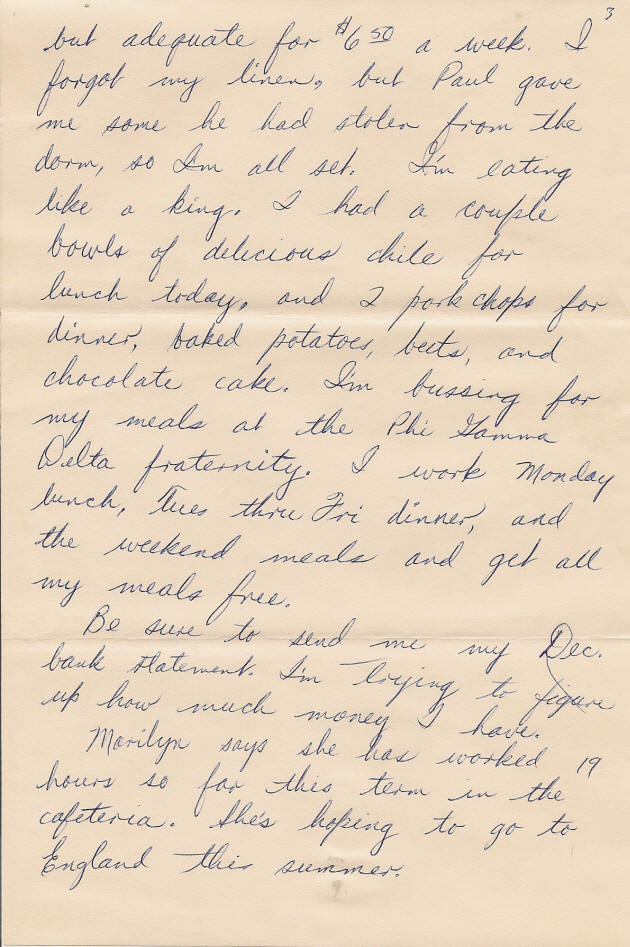 3
but adequate for $6 50 a week. I
forgot my linen, but Paul gave
me some he had stolen from the
dorm, so I'm all set. I'm eating
like a king. I had a couple
bowls of delicious chile for
lunch today, and 2 pork chops for
dinner, baked potatoes, beets, and
chocolate cake. I'm bussing for
my meals at the Phi Gamma
Delta fraternity. I work Monday
lunch, Tues thru Fri dinner, and
the weekend meals and get all
my meals free.
Be sure to send me my Dec.
bank statement. I'm trying to figure
up how much money I have.
Marilyn says she has worked 19
hours so far this term in the
cafeteria. She's hoping to go to
England this summer.